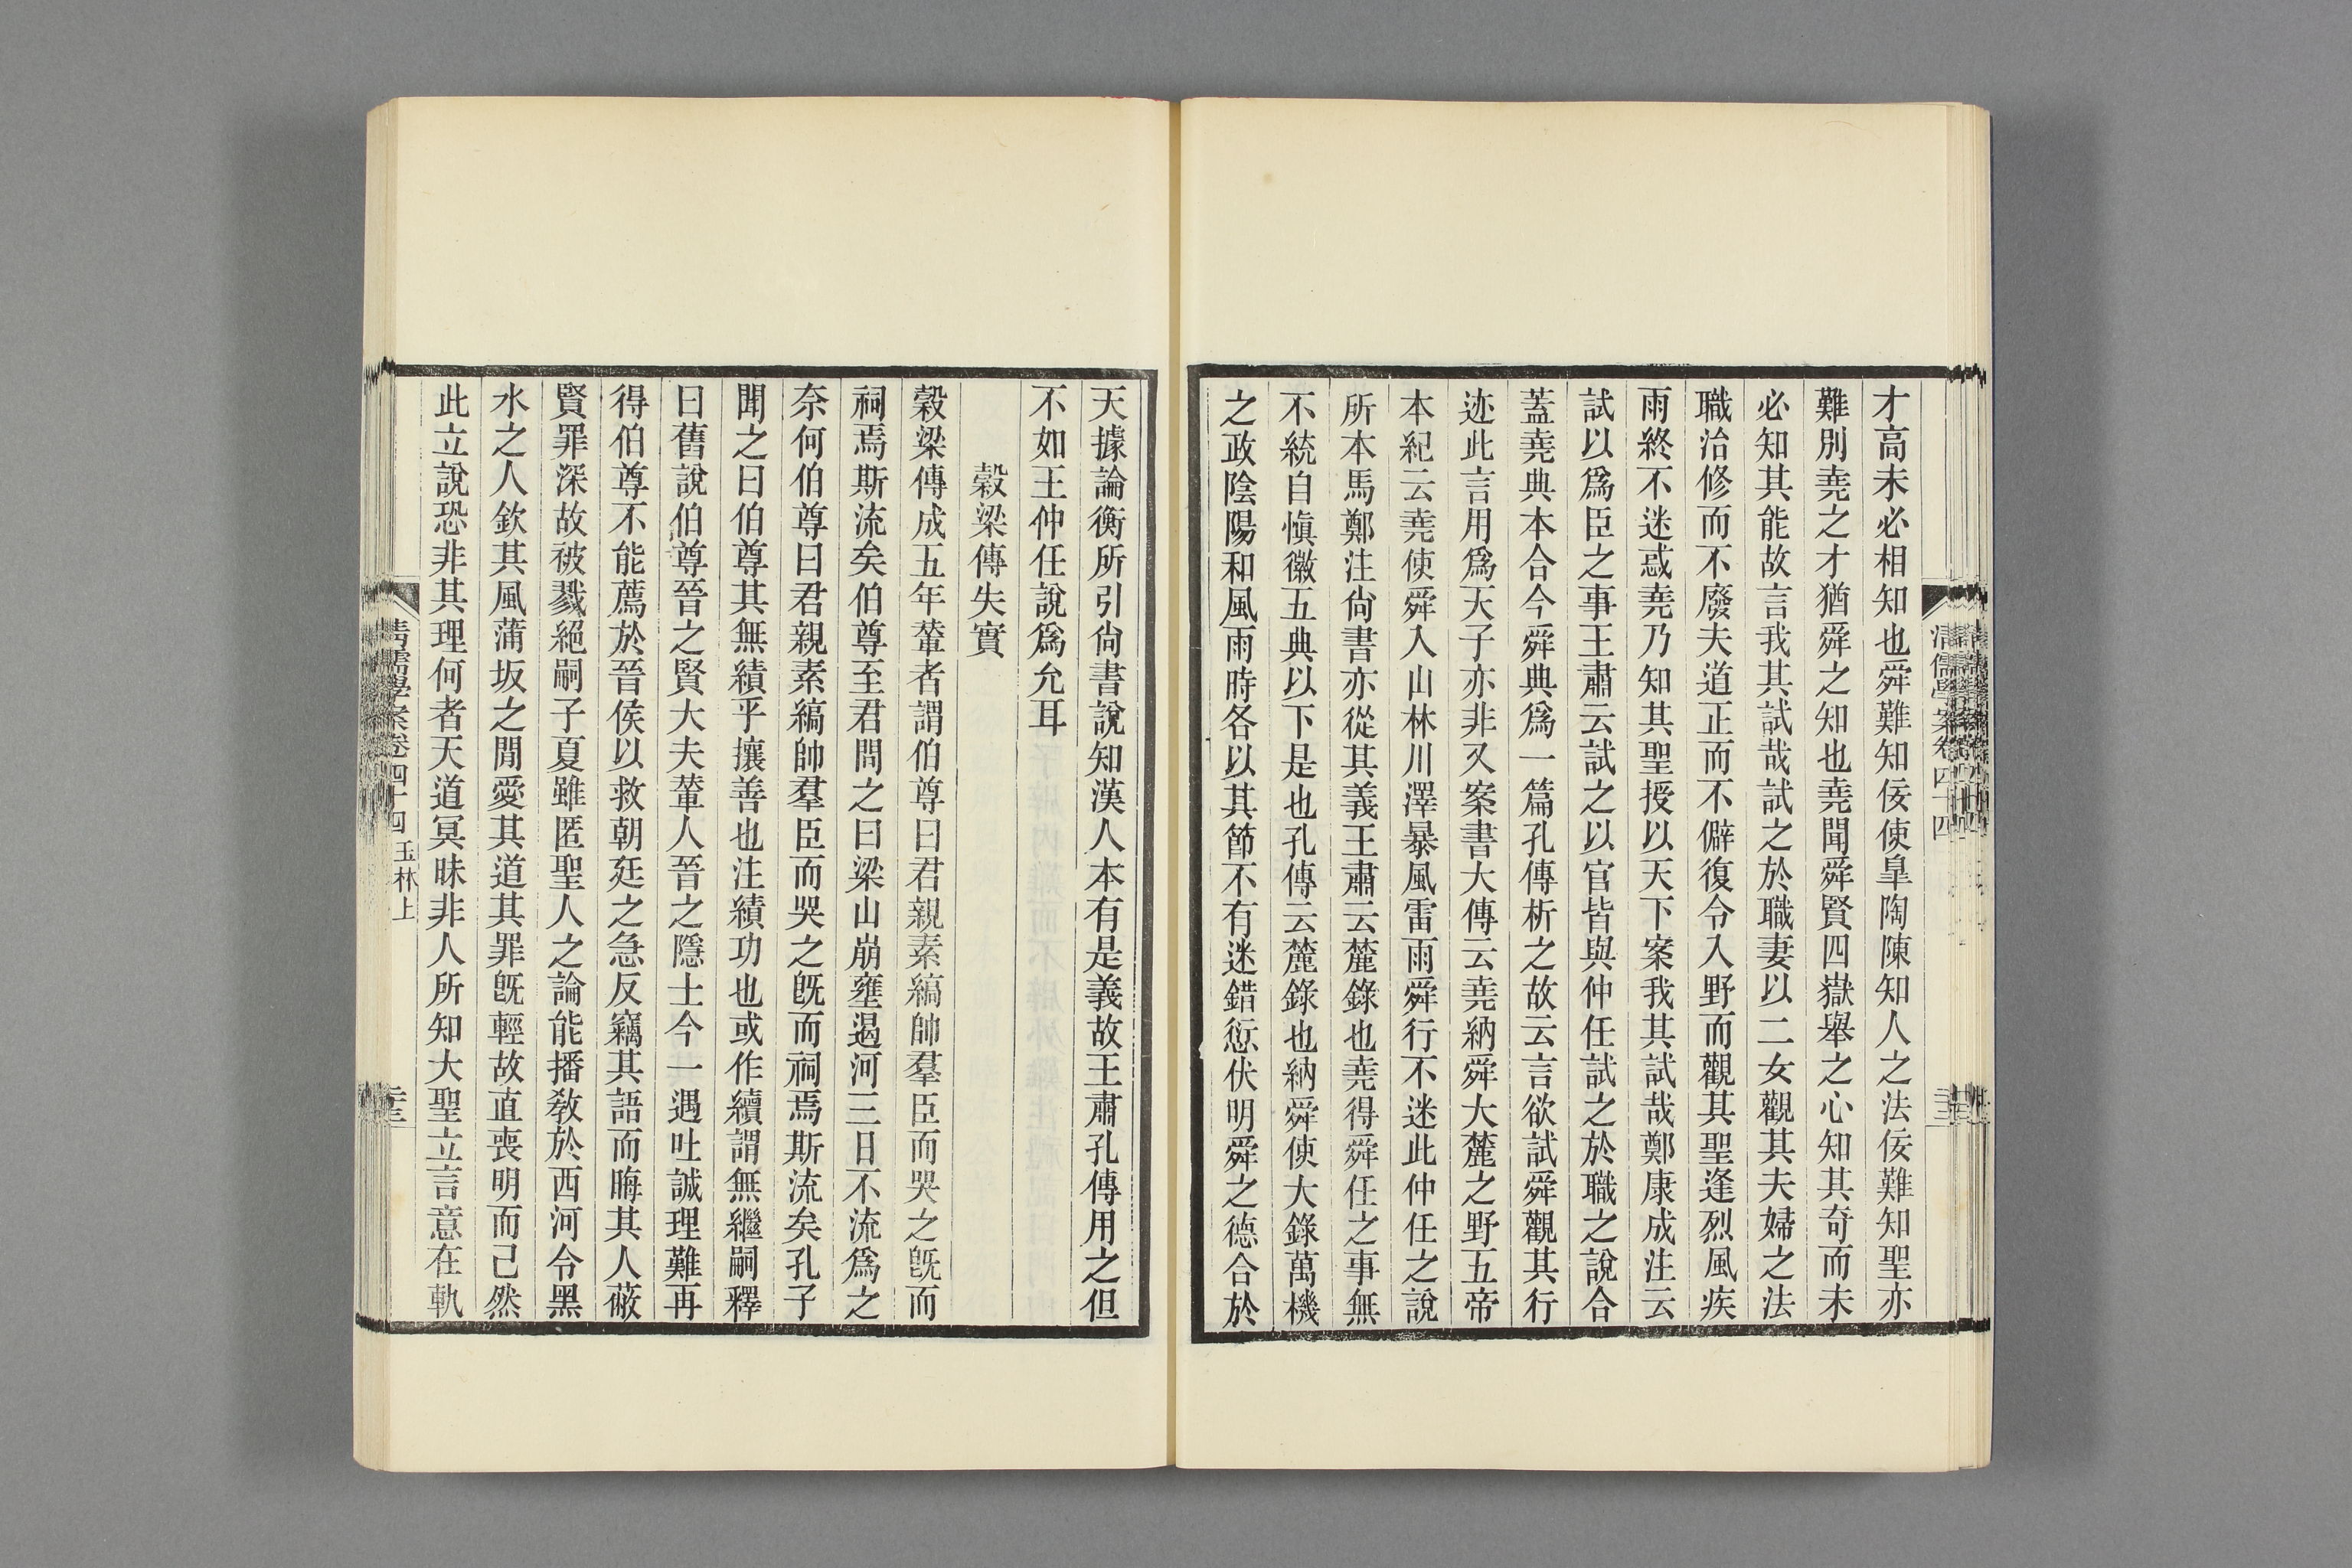 才高未必相知也舜難知佞使皐陶陳知人之法佞難知聖亦
難別堯之才猶舜之知也堯聞舜賢四嶽舉之心知其奇而未
必知其能故言我其試哉試之於職妻以二女觀其夫婦之法
職治修而不廢夫道正而不僻復令入野而觀其聖逢烈風疾
雨終不迷惑堯乃知其聖授以天下案我其試哉鄭康成注云
試以爲臣之事王肅云試之以官皆與仲任試之於職之說合
蓋堯典本合今舜典爲一篇孔傳析之故云言欲試舜觀其行
迹此言用爲天子亦非又案書大傳云堯納舜大麓之野五帝
本紀云堯使舜入山林川澤暴風雷雨舜行不迷此仲任之說
所本馬鄭注尙書亦從其義王肅云麓錄也堯得舜任之事無
不統自愼徽五典以下是也孔傳云麓錄也納舜使大錄萬機
之政陰陽和風雨時各以其節不有迷錯愆伏明舜之德合於
天據論衡所引尙書說知漢人本有是義故王肅孔傳用之但
不如王仲任說爲允耳
穀梁傳失實
穀梁傳成五年輦者謂伯尊曰君親素縞帥羣臣而哭之旣而
祠焉斯流矣伯尊至君問之曰梁山崩壅遏河三日不流爲之
奈何伯尊曰君親素縞帥羣臣而哭之旣而祠焉斯流矣孔子
聞之曰伯尊其無績乎攘善也注績功也或作續謂無繼嗣釋
曰舊說伯尊晉之賢大夫輦人晉之隱士今一遇吐誠理難再
得伯尊不能薦於晉侯以救朝廷之急反竊其語而晦其人蔽
賢罪深故被戮絕嗣子夏雖匿聖人之論能播敎於西河令黑
水之人欽其風蒲坂之閒愛其道其罪旣輕故直喪明而已然
此立說恐非其理何者天道冥昧非人所知大聖立言意在軌
清儒學案卷四十四 玉林上